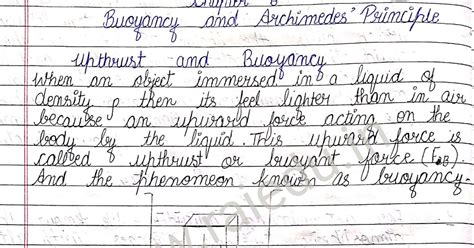 Buoyancy and Archimedes' Principle
Upthrust and Buoyancy
When an object immersed in a liquid of
density ρ then its feel lighter than in air
because an upward force acting on the
body by the liquid. This upward force is
called upthrust or buoyant force (FB).
And the phenomeon known as buoyancy.